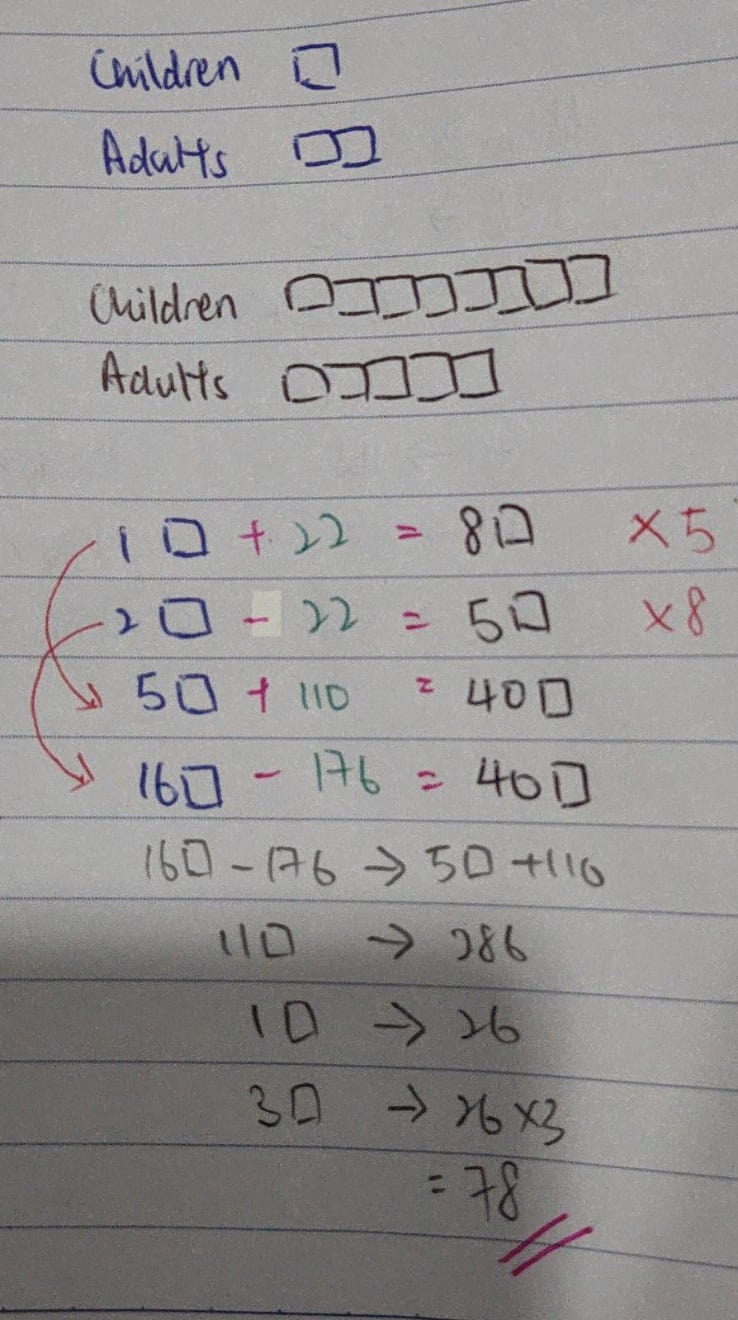 Children □
Adults □□
Children □□□□□□□□
Adults □□□□□
1□ + 22 = 8□ ×5
2□ - 22 = 5□ ×8
5□ + 110 = 40□
16□ - 176 = 40□
16□ - 176 → 5□ + 110
11□ → 286
1□ → 26
3□ → 26 × 3
= 78